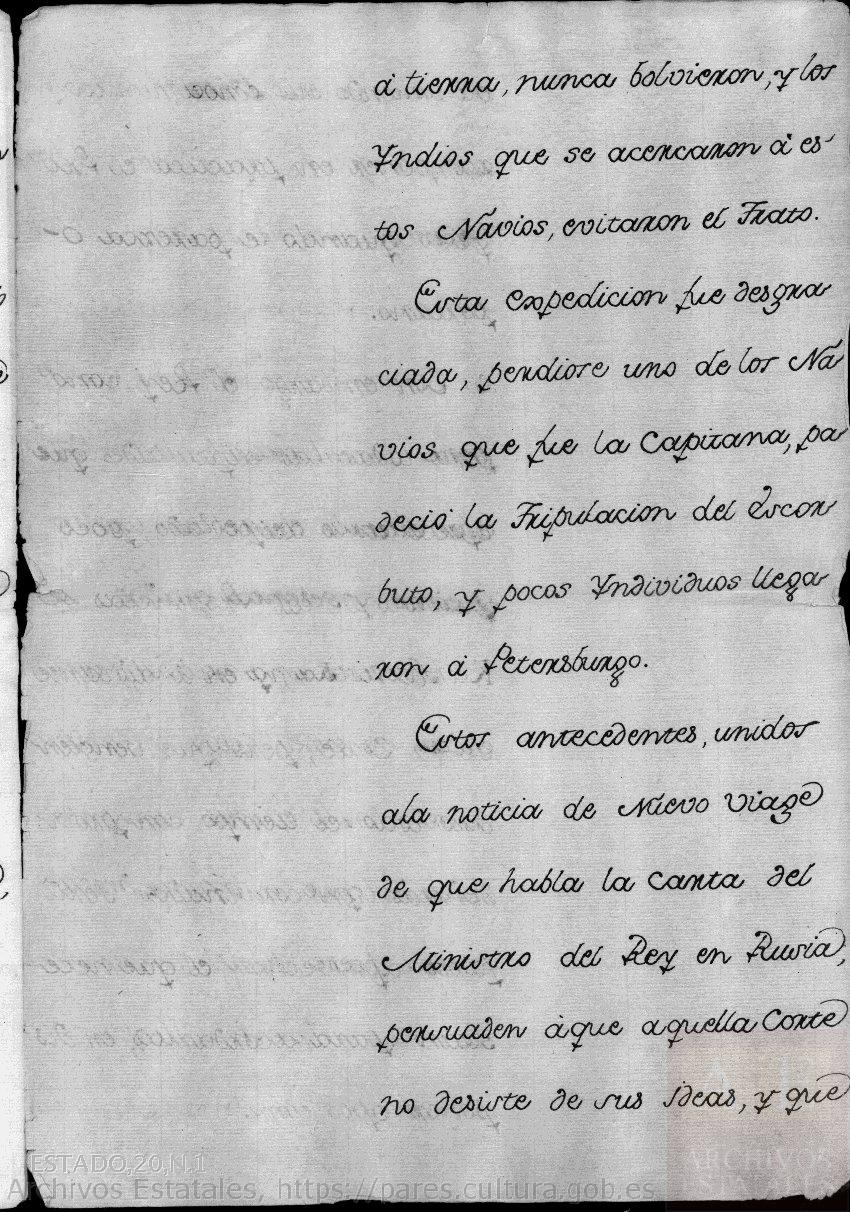 à tierra, nunca bolvieron, y los
Yndios que se acercaron à es-
tos Návios, evitaron el Trato.
Esta expedicion fue desgra
ciada, perdiose uno de los Ná
vios que fue la Capitana, pa
deció la Tripulacion del Escor
buto, y pocos Yndividuos llega
ron à Petersburgo.
Estos antecedentes, unidos
ala noticia de Nuevo Viage
de que habla la carta del
Ministro del Rey en Rusia,
persuaden à que aquella Corte
no desiste de sus ideas, y que
ESTADO,20,N.1
Archivos Estatales, https://pares.cultura.gob.es
Archivos
Estatales